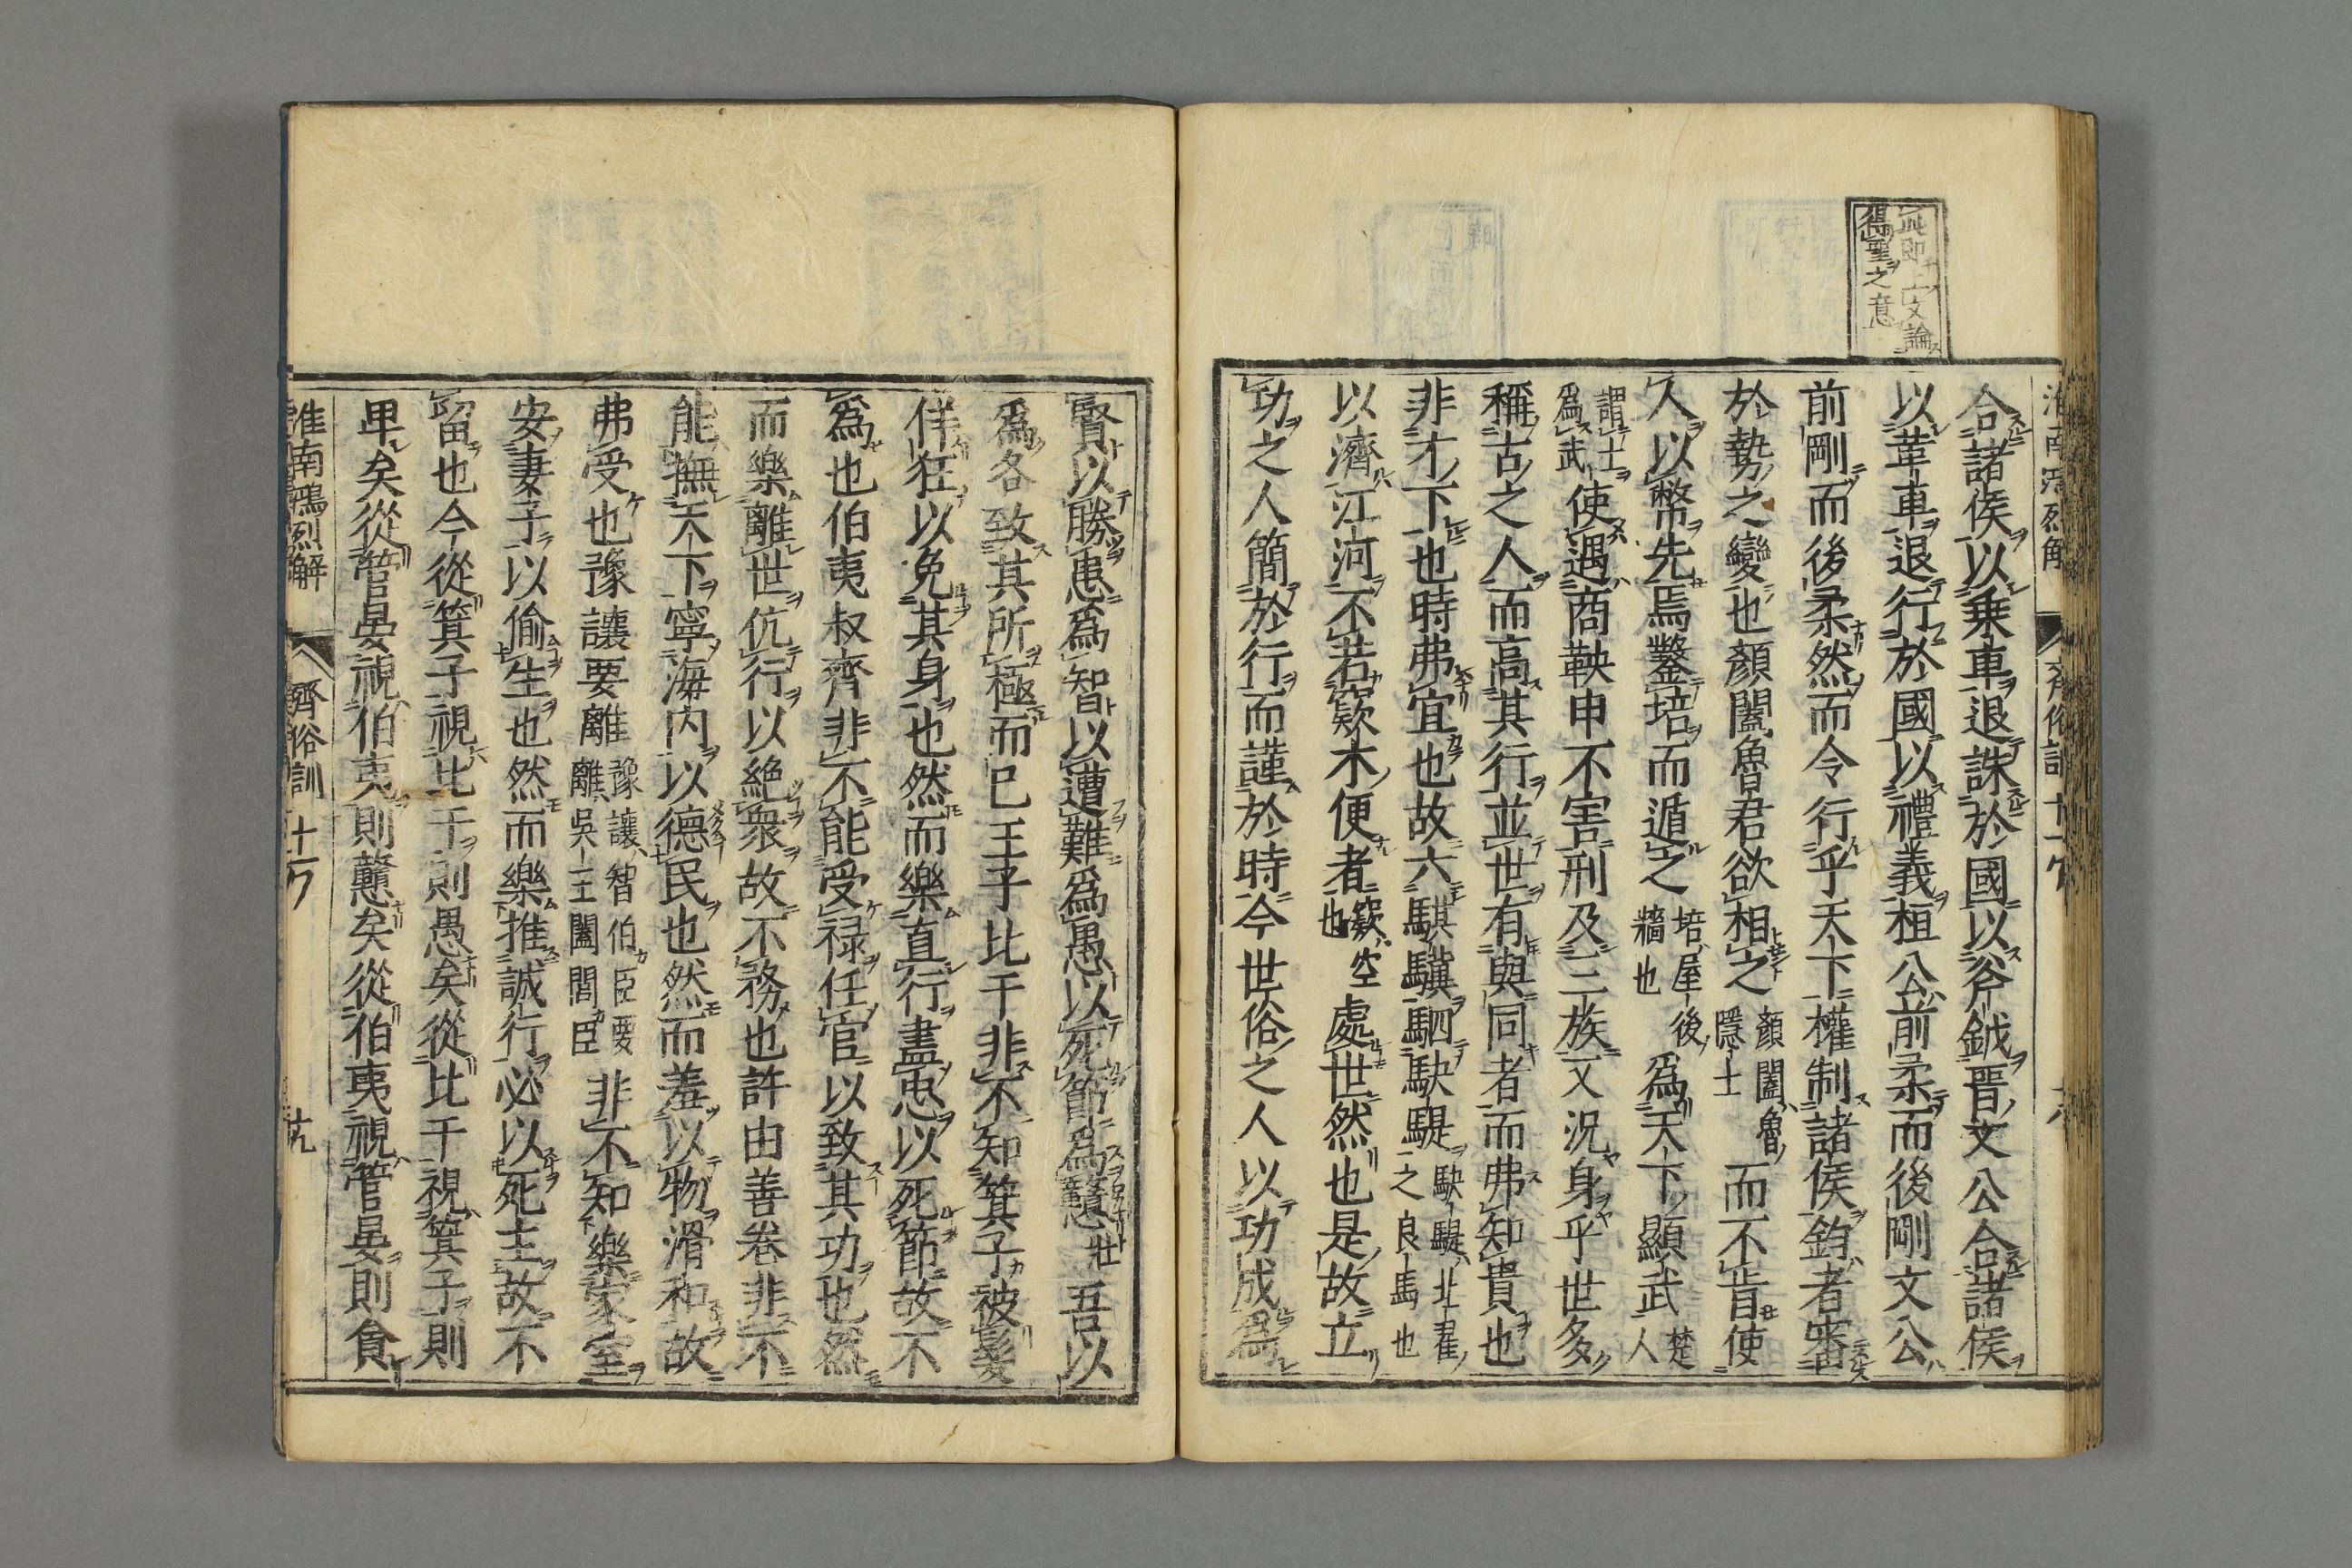 此即上文論
得聖之意
合諸侯以乗車退誅於國以斧鉞晋文公合諸侯
以革車退行於國以禮義桓公前柔而後剛文公
前剛而後柔然而令行乎天下權制諸侯鈞者審
於勢之變也顔闔魯君欲相之顔闔魯隱士而不肯使
人以幣先焉鑿培而遁之培屋後牆也爲天下顯武楚人
謂士爲武使遇商鞅申不害刑及三族又況身乎世多
稱古之人而高其行並世有與同者而弗知貴也
非才下也時弗宜也故六騏驥駟駃騠駃騠北翟之良馬也
以濟江河不若窾木便者窾空也處世然也是故立
功之人簡於行而謹於時今世俗之人以功成爲
賢以勝患爲智以遭難爲愚以死節爲戇壯吾以
爲各致其所極而已王子比干非不知箕子被髮
佯狂以免其身也然而樂直行盡忠以死節故不
爲也伯夷叔齊非不能受禄任官以致其功也然
而樂離世伉行以絶衆故不務也許由善卷非不
能撫天下寧海内以德民也然而羞以物滑和故
弗受也豫讓要離豫讓智伯臣要離吳王闔閭臣非不知樂家室
安妻子以偷生也然而樂推誠行必以死主故不
留也今從箕子視比干則愚矣從比干視箕子則
卑矣從管晏視伯夷則戇矣從伯夷視管晏則貪
淮南鴻烈解 齊俗訓 十一 十九